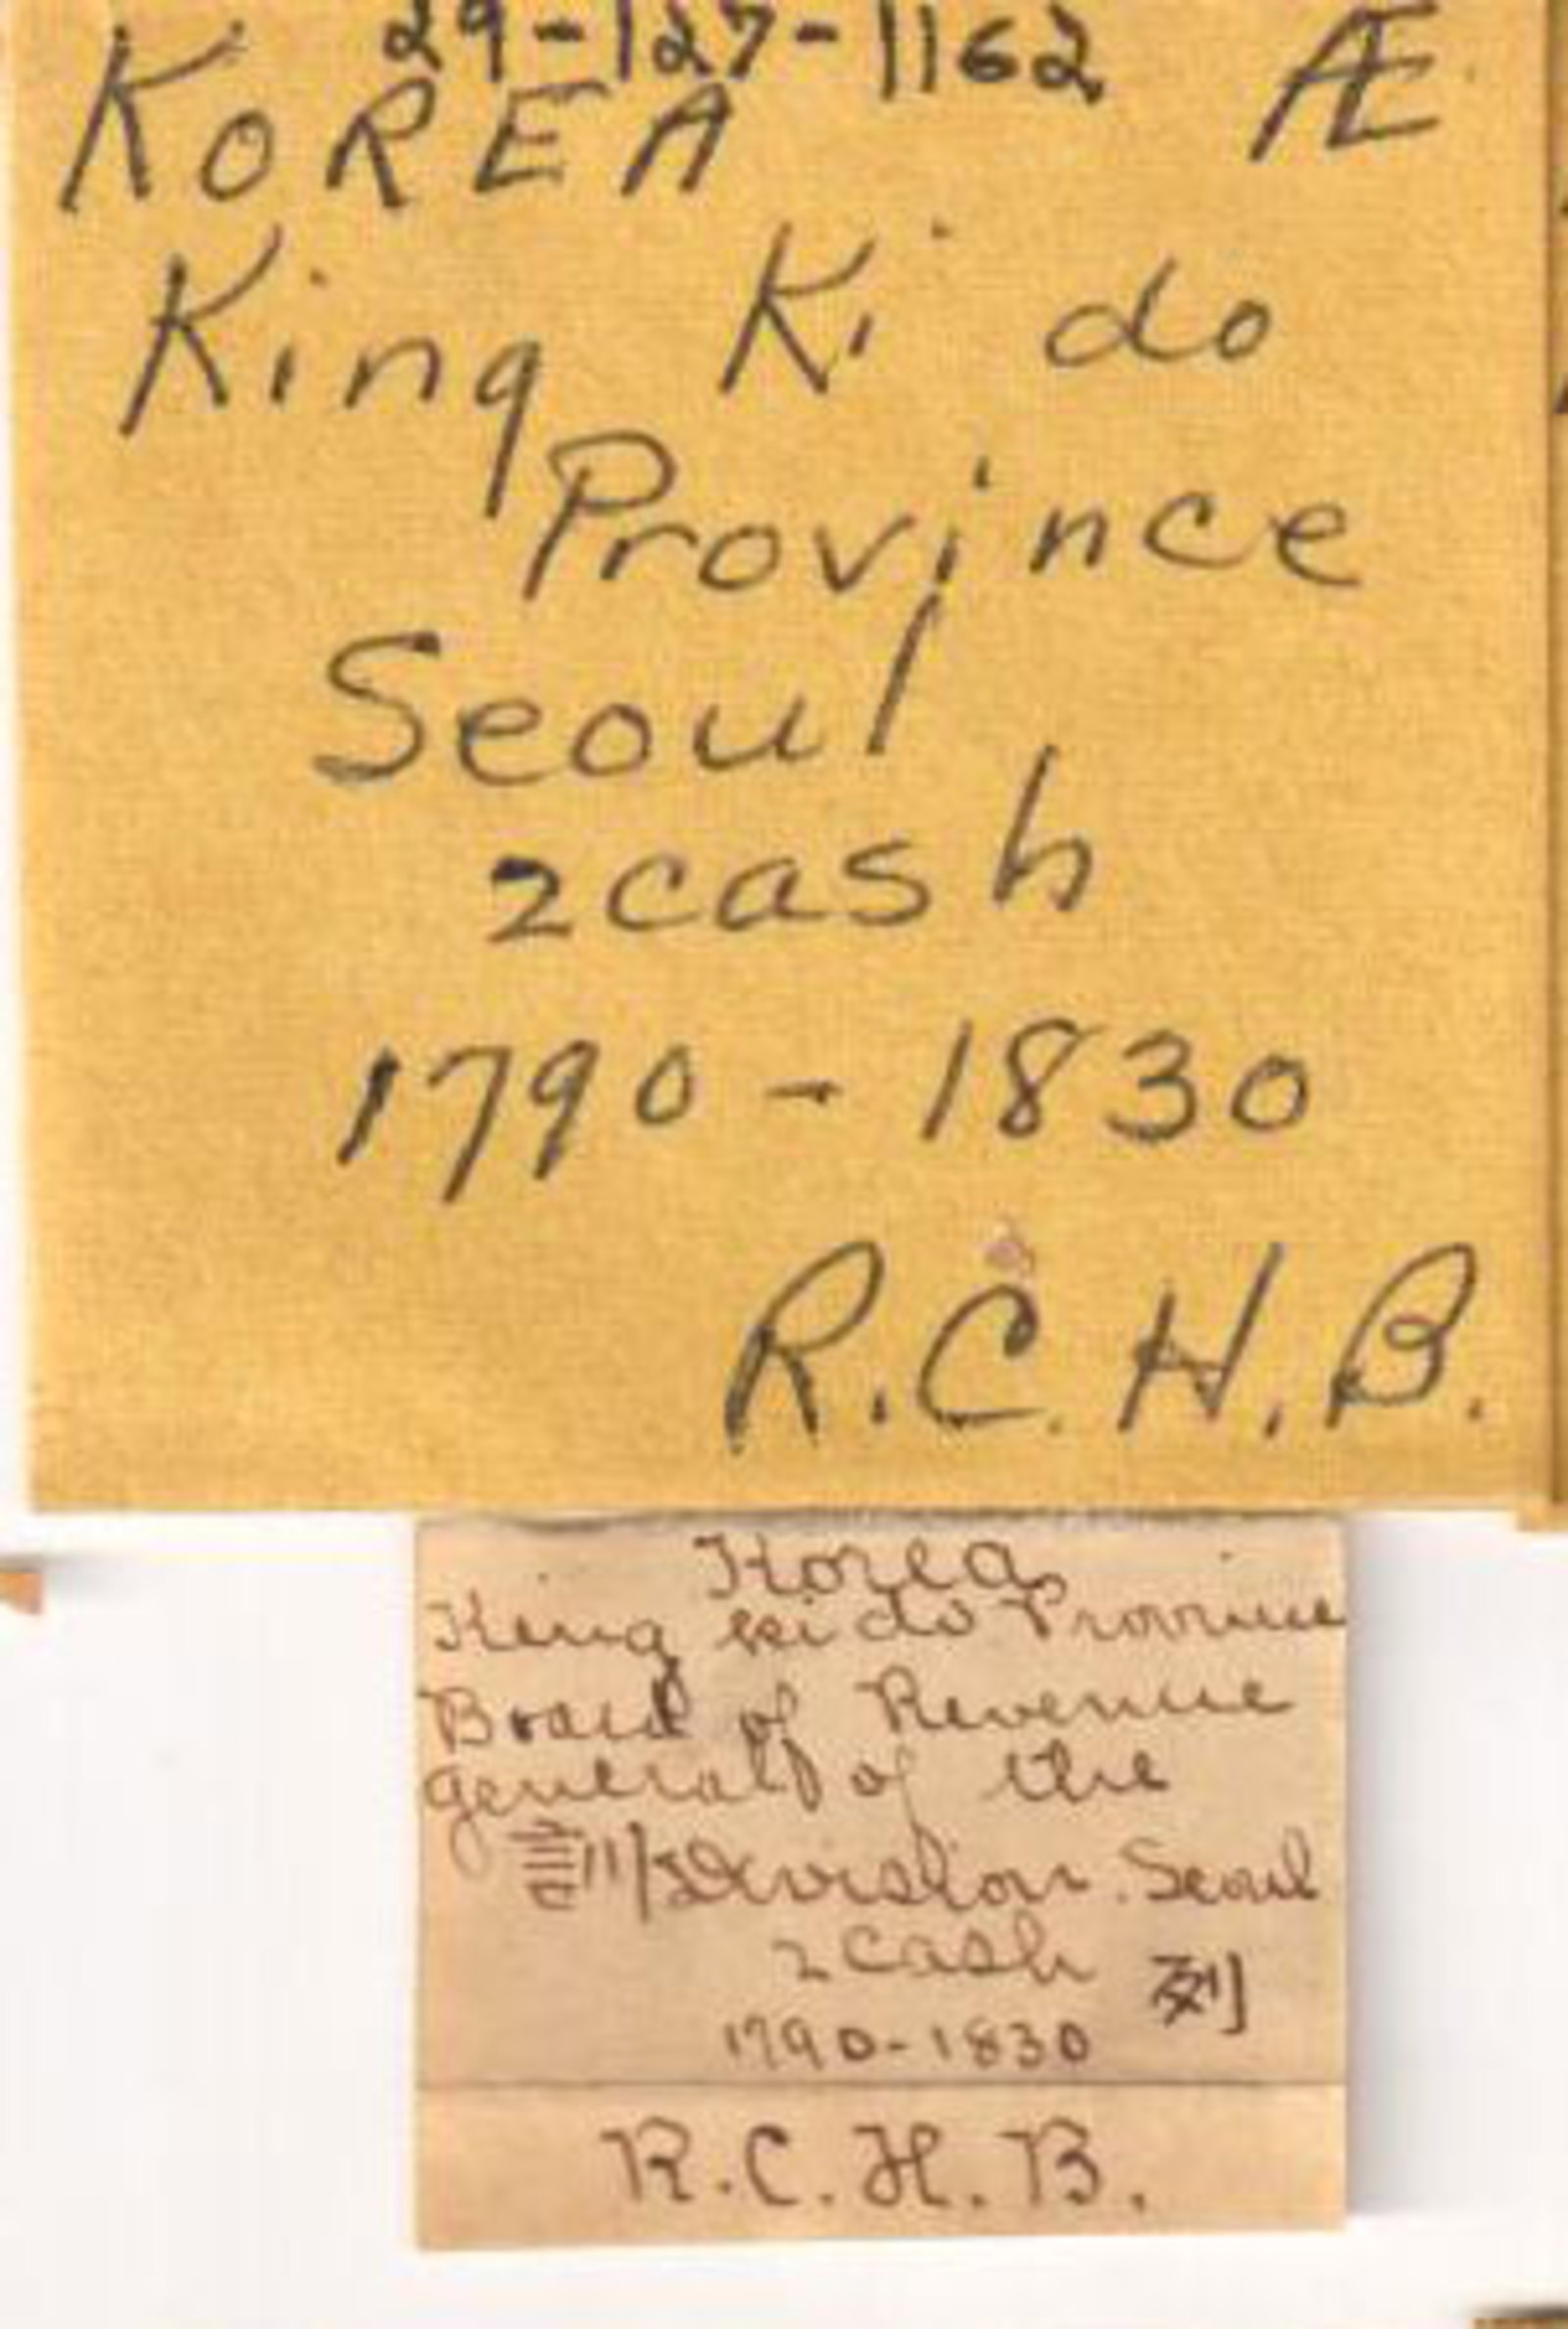 29-127-1162
KOREA Æ
King Ki do
Province
Seoul
2 cash
1790 - 1830
R.C.H.B.
Korea
King ki do Province
Board of Revenue
general of the
訓/Division. Seoul
2 cash
1790-1830
R.C.H.B.